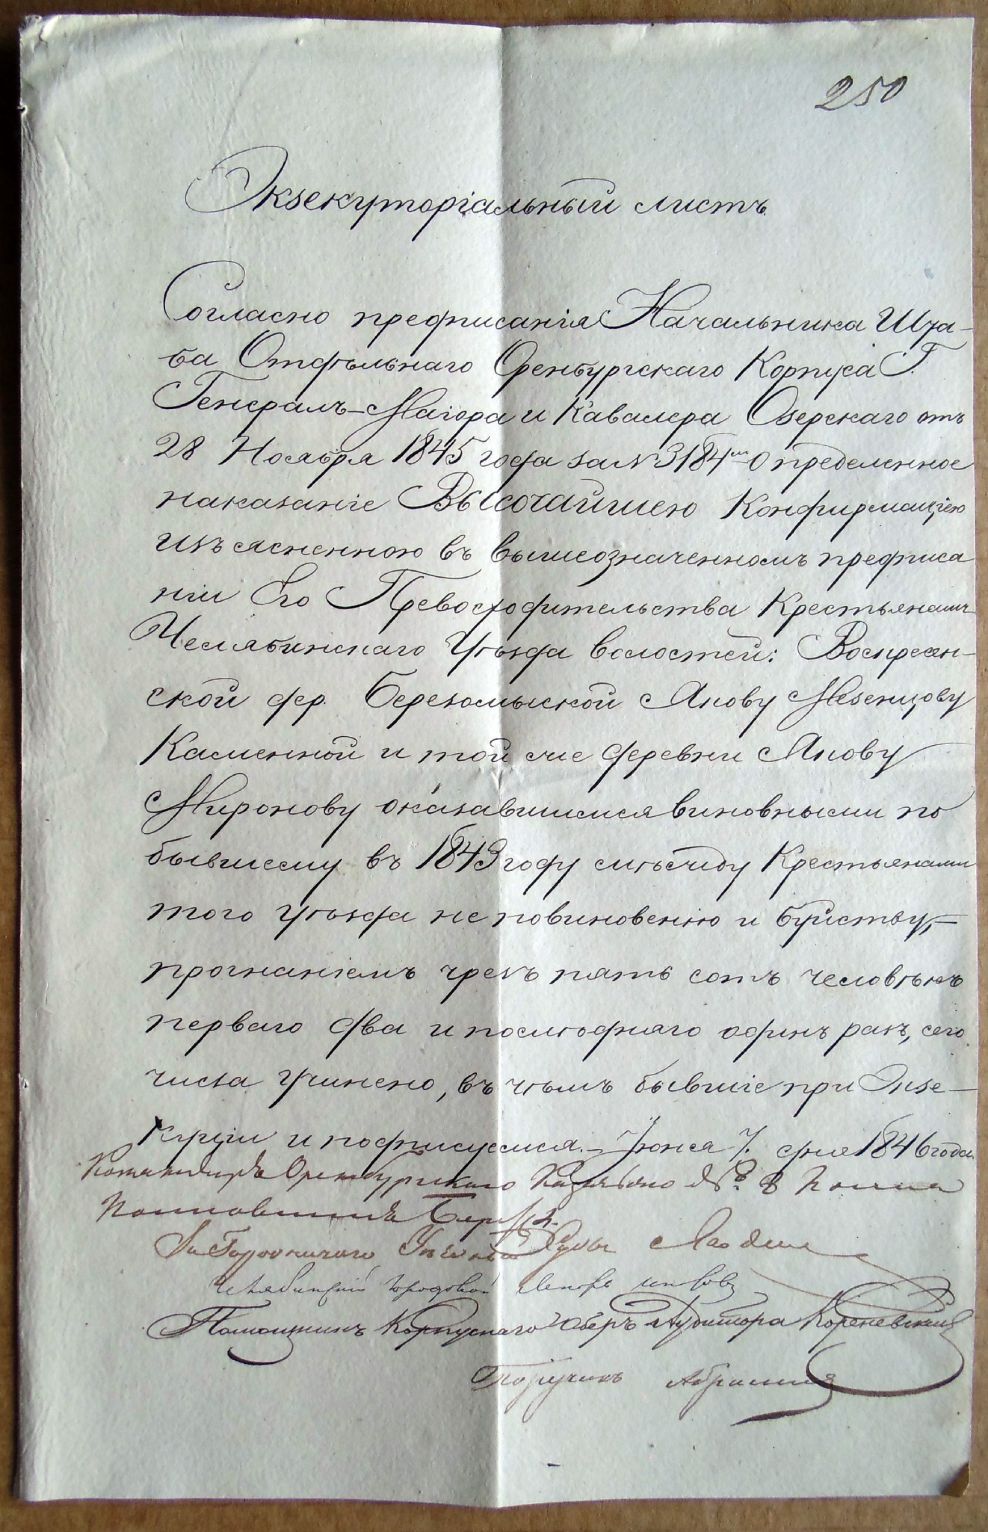 250
Экзекуторіальный листъ
Согласно предписанія Начальника Шта-
ба Отдѣльнаго Оренбургскаго Корпуса Г.
Генералъ-Маіора и Кавалера Озерскаго отъ
28 Ноября 1845 года за № 3184 м опредѣленное
наказаніе Высочайшею Конфирмаціею
изъясненною въ вышеозначенномъ предписа
ніи Его Превосходительства Крестьянамъ
Челябинскаго Уѣзда волостей: Воскресен-
ской дер. Березомыской Якову Мезенцову
Каменной и той же деревни Якову
Миронову оказавшимися виновными по
бывшему въ 1843 году между Крестьянами
того уѣзда неповиновенію и буйству,-
прогнаніемъ чрезъ пять сотъ человѣкъ
перваго два и послѣдняго одинъ разъ, сего
числа учинено, въ чѣмъ бывшіе при Экзе-
куціи и подписуемся. Іюня 7. дня 1846 года.
Командиръ Оренбургскаго Казачьяго № 8 полка
Полковникъ
За Городничаго
Челябинскій городовой
Помощникъ Корпуснаго Оберъ Аудитора Кореневскій
Поручикъ